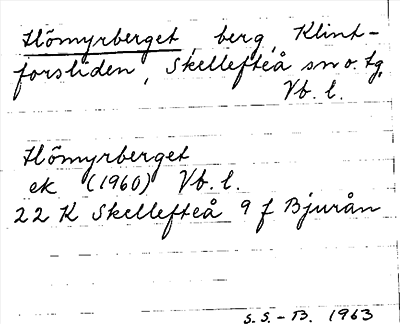 Hömyrberget, berg, Klint-
forsliden, Skellefteå sn o. tg.
Vb. l.
Hömyrberget
ek (1960) Vb. l.
22 K Skellefteå 9 f Bjurån
S. S. - B. 1963